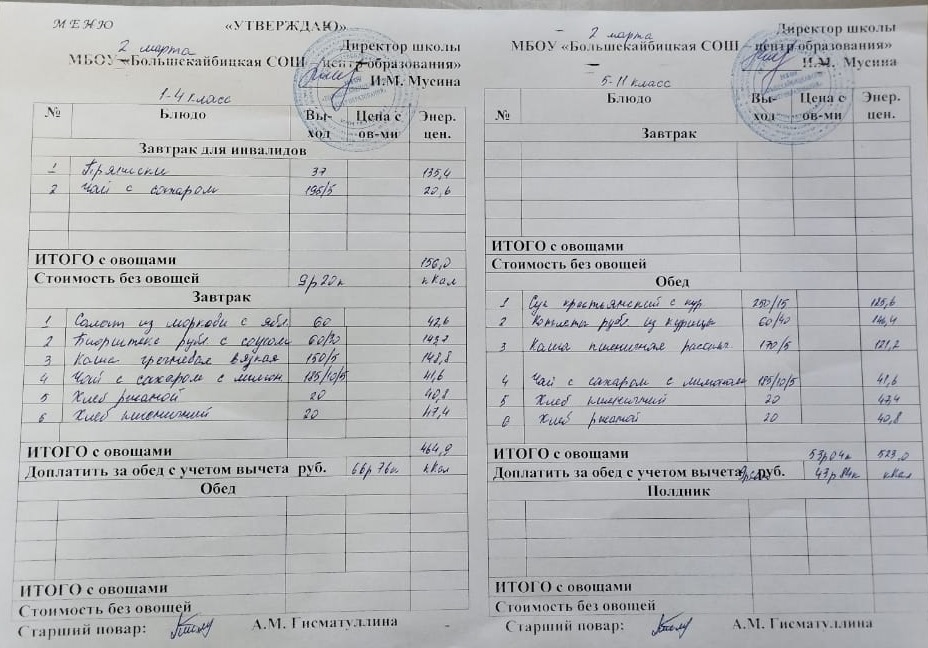 МЕНЮ «УТВЕРЖДАЮ»
2 марта Директор школы
МБОУ «Большекайбицкая СОШ – центр образования»
И.М. Мусина
1-4 класс
№ Блюдо Вы-ход Цена с ов-ми Энер. цен.
Завтрак для инвалидов
1 Пряники 37 135,4
2 Чай с сахаром 195/5 20,6
ИТОГО с овощами 156,0
Стоимость без овощей 9р20к кКал
Завтрак
1 Салат из моркови с ябл 60 42,6
2 Биорштекс рубл с соусом 60/30
3 Каша гречневая вязкая 150/5 148,8
4 Чай с сахаром с лимон 185/10/5 41,6
5 Хлеб ржаной 20 40,8
6 Хлеб пшеничный 20 47,4
ИТОГО с овощами 464,9
Доплатить за обед с учетом вычета руб. 66р76к кКал
Обед
ИТОГО с овощами
Стоимость без овощей
Старший повар: А.М. Гисматуллина
2 марта Директор школы
МБОУ «Большекайбицкая СОШ – центр образования»
И.М. Мусина
5-11 класс
№ Блюдо Вы-ход Цена с ов-ми Энер. цен.
Завтрак
ИТОГО с овощами
Стоимость без овощей
Обед
1 Суп крестьянский с кур 250/15 125,6
2 Котлета рубл из курицы 60/40 146,4
3 Каша пшеничная рассып 170/5 121,2
4 Чай с сахаром с лимоном 185/10/5 41,6
5 Хлеб пшеничный 20 47,4
6 Хлеб ржаной 20 40,8
ИТОГО с овощами 53р04к 523,0
Доплатить за обед с учетом вычета руб. 43р84к кКал
Полдник
ИТОГО с овощами
Стоимость без овощей
Старший повар: А.М. Гисматуллина